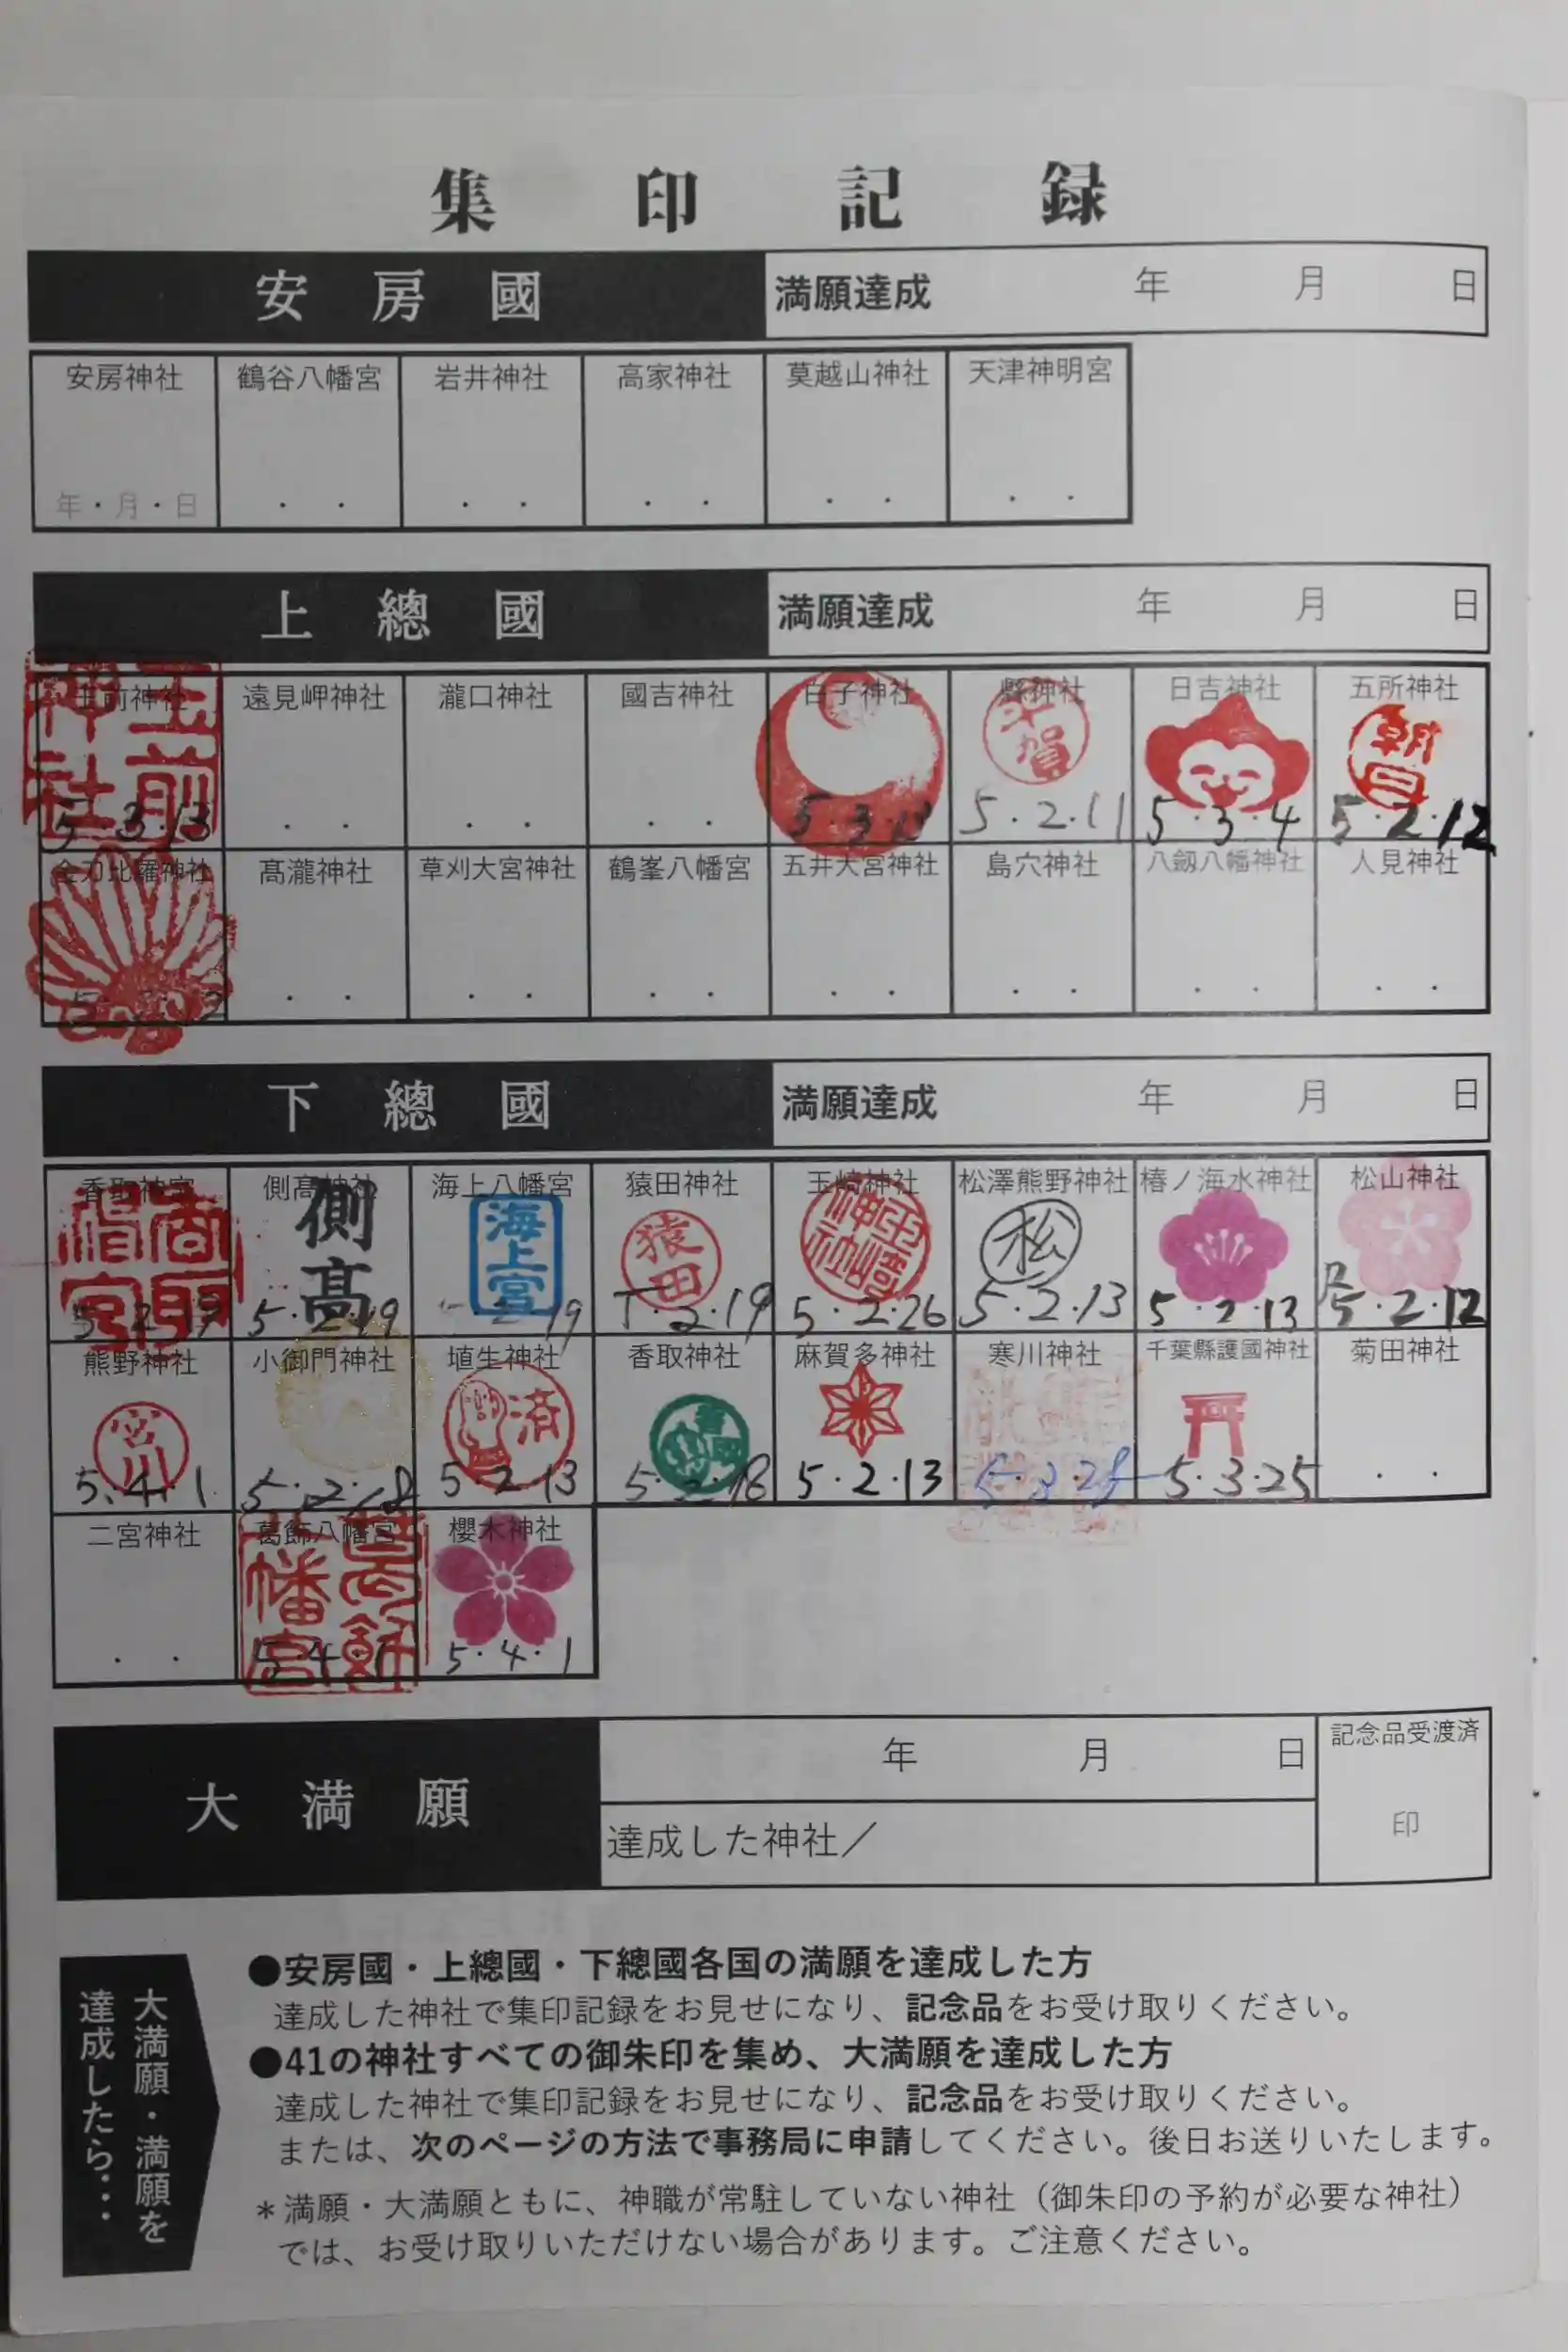 集印記録
安房國 満願達成 年 月 日
安房神社 鶴谷八幡宮 岩井神社 高家神社 莫越山神社 天津神明宮
年・月・日 ・ ・ ・ ・ ・ ・ ・ ・ ・ ・
上總國 満願達成 年 月 日
玉前神社 遠見岬神社 瀧口神社 國吉神社 白子神社 縣神社 日吉神社 五所神社
玉前神社 賀 朝日
5・3・13 ・ ・ ・ ・ ・ ・ 5・3・13 5・2・11 5・3・4 5・2・12
金刀比羅神社 髙瀧神社 草刈大宮神社 鶴峯八幡宮 五井大宮神社 島穴神社 八劔八幡神社 人見神社
・ ・ ・ ・ ・ ・ ・ ・ ・ ・ ・ ・ ・ ・
下總國 満願達成 年 月 日
香取神宮 側髙神社 海上八幡宮 猿田神社 玉﨑神社 松澤熊野神社 椿ノ海水神社 松山神社
香取神宮 側髙 海上宮 猿田 松
5・2・19 5・2・19 2・19 5・2・19 5・2・26 5・2・13 5・2・13 5・2・12
熊野神社 小御門神社 埴生神社 香取神社 麻賀多神社 寒川神社 千葉縣護國神社 菊田神社
宮川 済
5.4.1. 5・2・18 5・2・13 5・2・18 5・2・13 5・3・25 5・3・25 ・ ・
二宮神社 葛飾八幡宮 櫻木神社
葛飾八幡宮
・ ・ 5・4・1 5・4・1
大満願 年 月 日 記念品受渡済
達成した神社／ 印
大満願・満願を
達成したら・・・
●安房國・上總國・下總國各国の満願を達成した方
達成した神社で集印記録をお見せになり、記念品をお受け取りください。
●41の神社すべての御朱印を集め、大満願を達成した方
達成した神社で集印記録をお見せになり、記念品をお受け取りください。
または、次のページの方法で事務局に申請してください。後日お送りいたします。
＊満願・大満願ともに、神職が常駐していない神社（御朱印の予約が必要な神社）
では、お受け取りいただけない場合があります。ご注意ください。